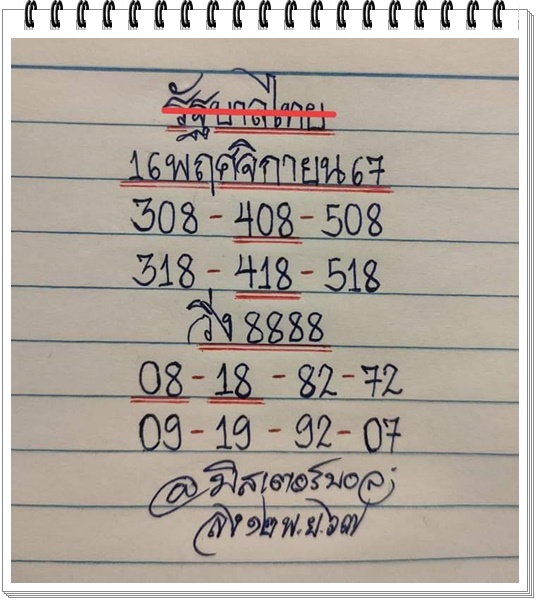 รัฐบาลไทย
16 พฤศจิกายน 67
308 - 408 - 508
318 - 418 - 518
วิ่ง 8888
08 - 18 - 82 - 72
09 - 19 - 92 - 07
@มิสเตอร์บอล;
ลง ๑๒ พ.ย. ๖๗